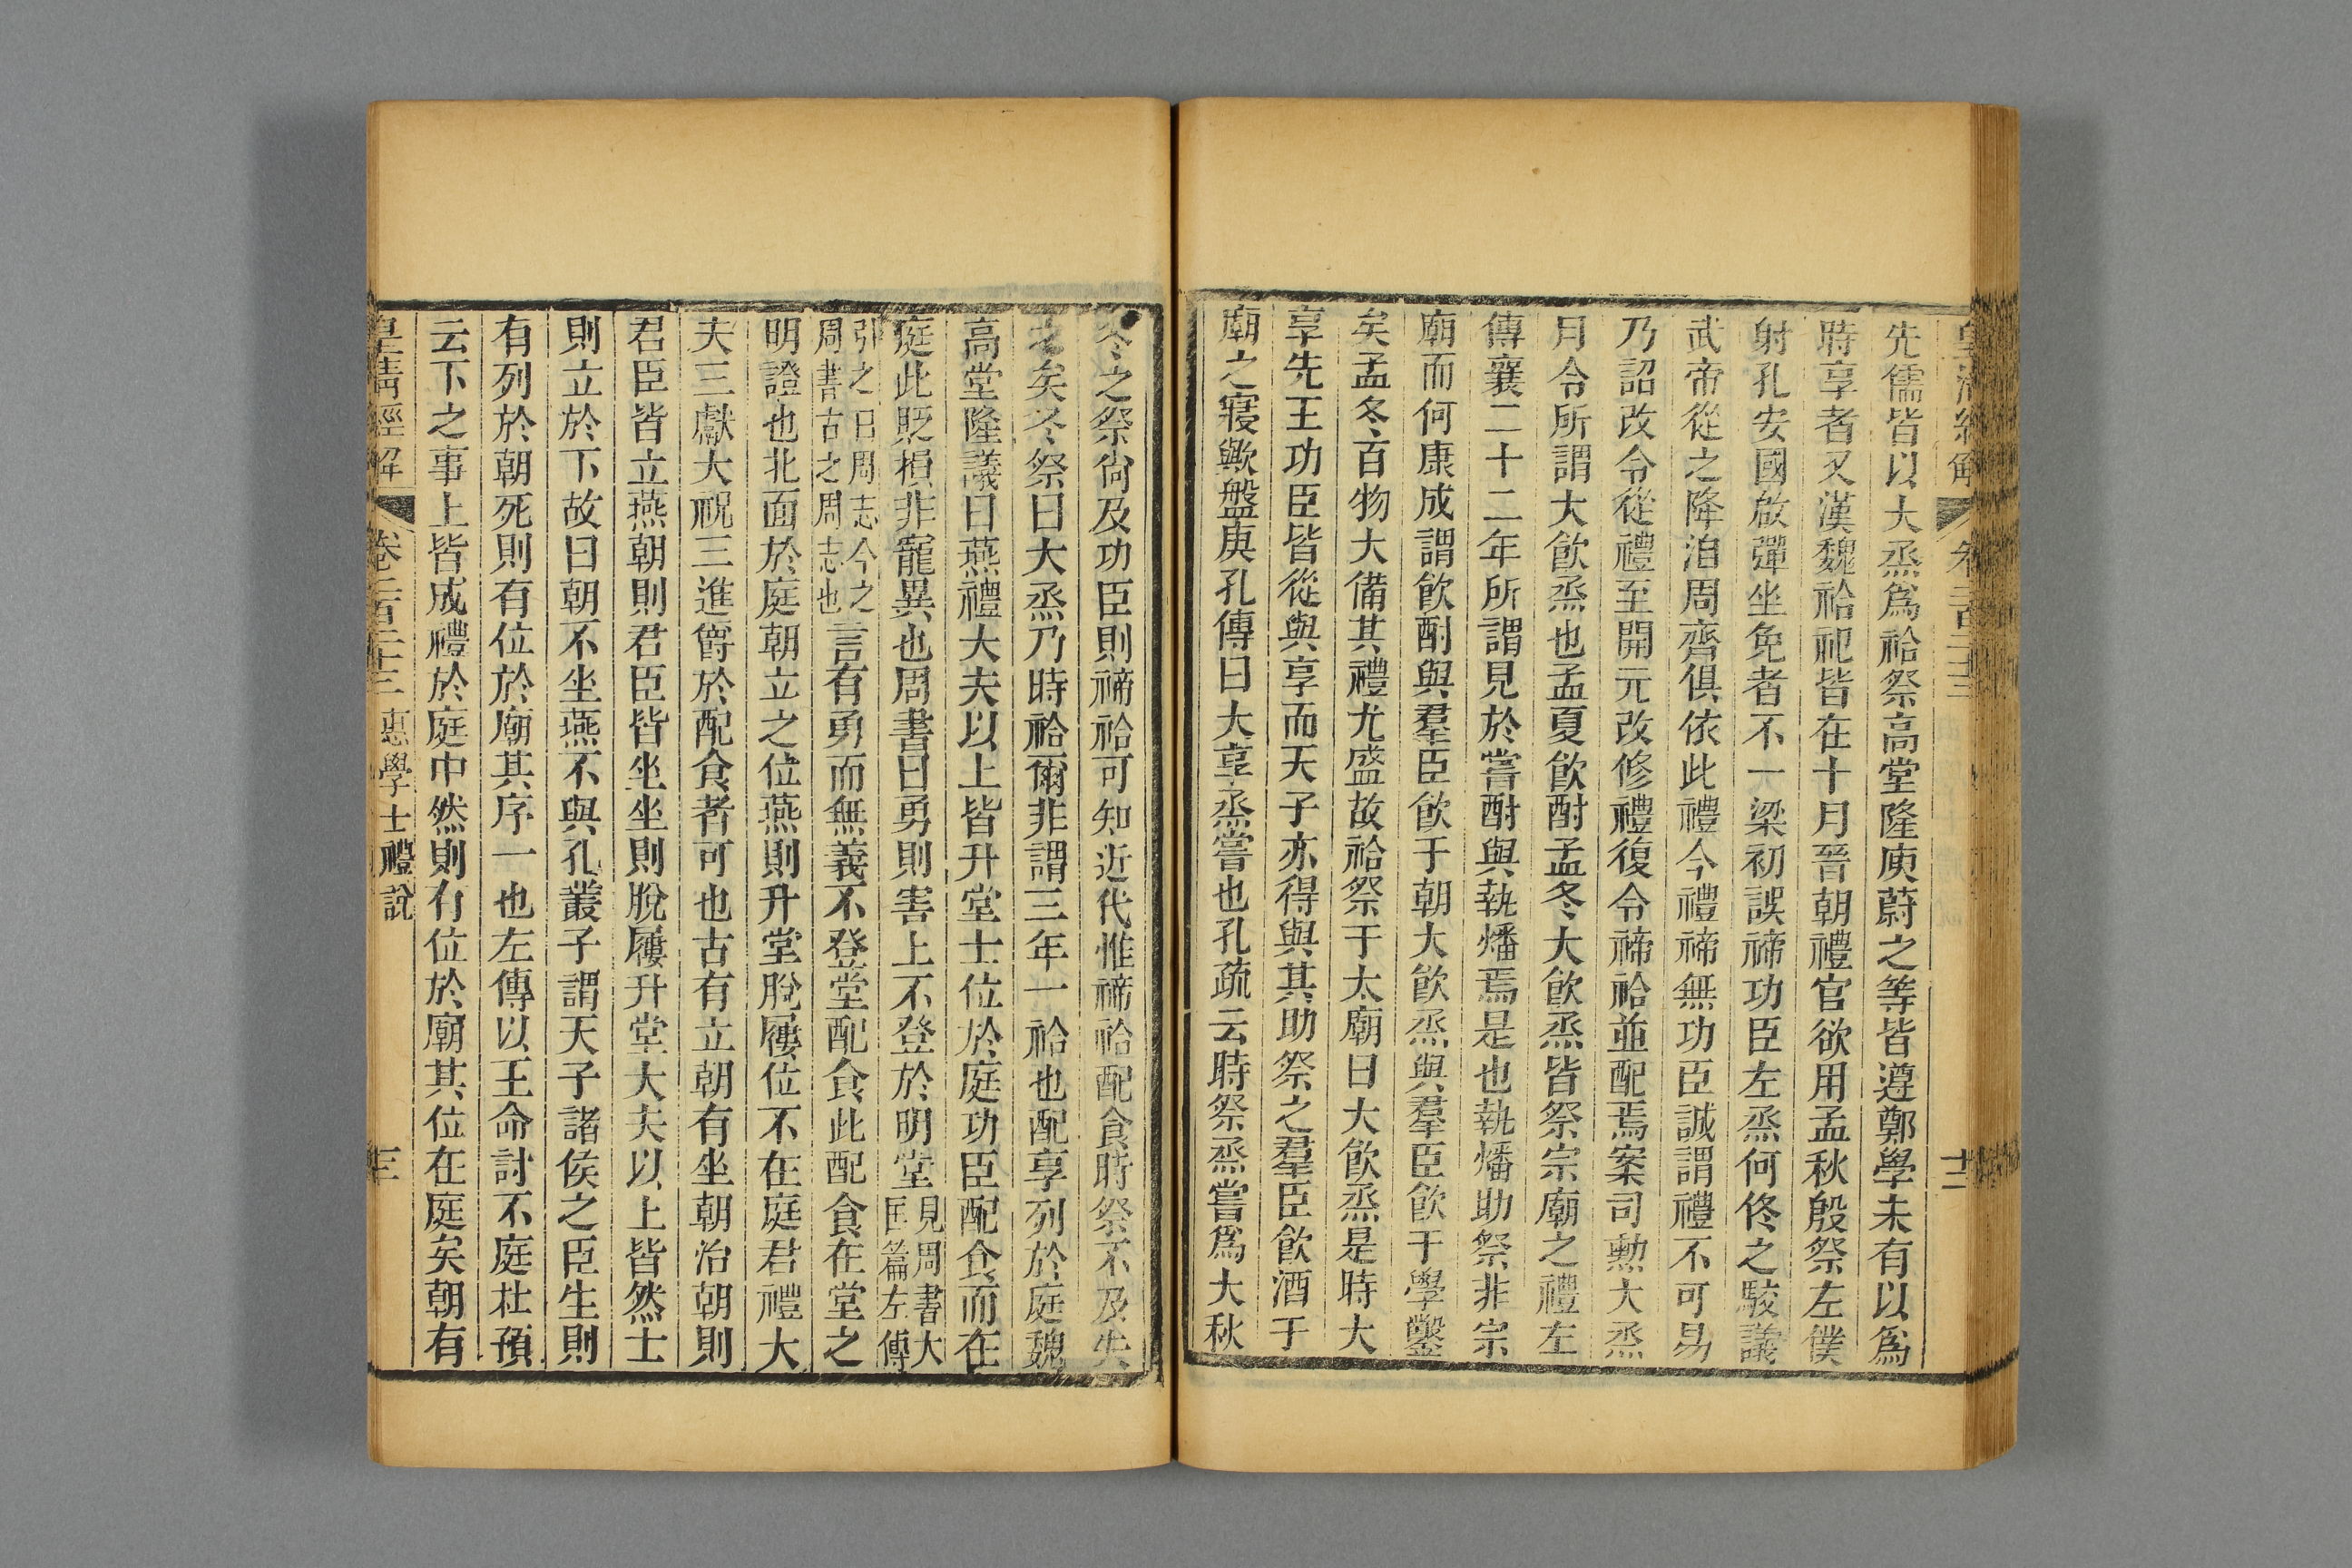 皇清經解 卷二百二十三 十二
先儒皆以大烝爲祫祭高堂隆庾蔚之等皆遵鄭學未有以爲
時享者又漢魏祫祀皆在十月晉朝禮官欲用孟秋殷祭左僕
射孔安國啟彈坐免者不一梁初誤禘功臣左烝何佟之駮議
武帝從之降洎周齊俱依此禮今禮禘無功臣誠謂禮不可易
乃詔改令從禮至開元改修禮復令禘祫並配焉案司勲大烝
月令所謂大飮烝也孟夏飮酎孟冬大飮烝皆祭宗廟之禮左
傳襄二十二年所謂見於嘗酎與執燔焉是也執燔助祭非宗
廟而何康成謂飮酎與羣臣飮于朝大飮烝與羣臣飮于學鑿
矣孟冬百物大備其禮尤盛故祫祭于太廟曰大飮烝是時大
享先王功臣皆從與享而天子亦得與其助祭之羣臣飮酒于
廟之寢歟盤庚孔傳曰大享烝嘗也孔疏云時祭烝嘗爲大秋
冬之祭尙及功臣則禘祫可知近代惟禘祫配食時祭不及失
之矣冬祭曰大烝乃時祫爾非謂三年一祫也配享列於庭魏
高堂隆議曰燕禮大夫以上皆升堂士位於庭功臣配食而在
庭此貶損非寵異也周書曰勇則害上不登於明堂見周書大匡篇左傳
引之曰周志今之周書古之周志也言有勇而無義不登堂配食此配食在堂之
明證也北面於庭朝立之位燕則升堂脫屨位不在庭君禮大
夫三獻大祝三進爵於配食者可也古有立朝有坐朝治朝則
君臣皆立燕朝則君臣皆坐坐則脫屨升堂大夫以上皆然士
則立於下故曰朝不坐燕不與孔叢子謂天子諸侯之臣生則
有列於朝死則有位於廟其序一也左傳以王命討不庭杜預
云下之事上皆成禮於庭中然則有位於廟其位在庭矣朝有
皇清經解 卷二百二十三 惠學士禮說 三